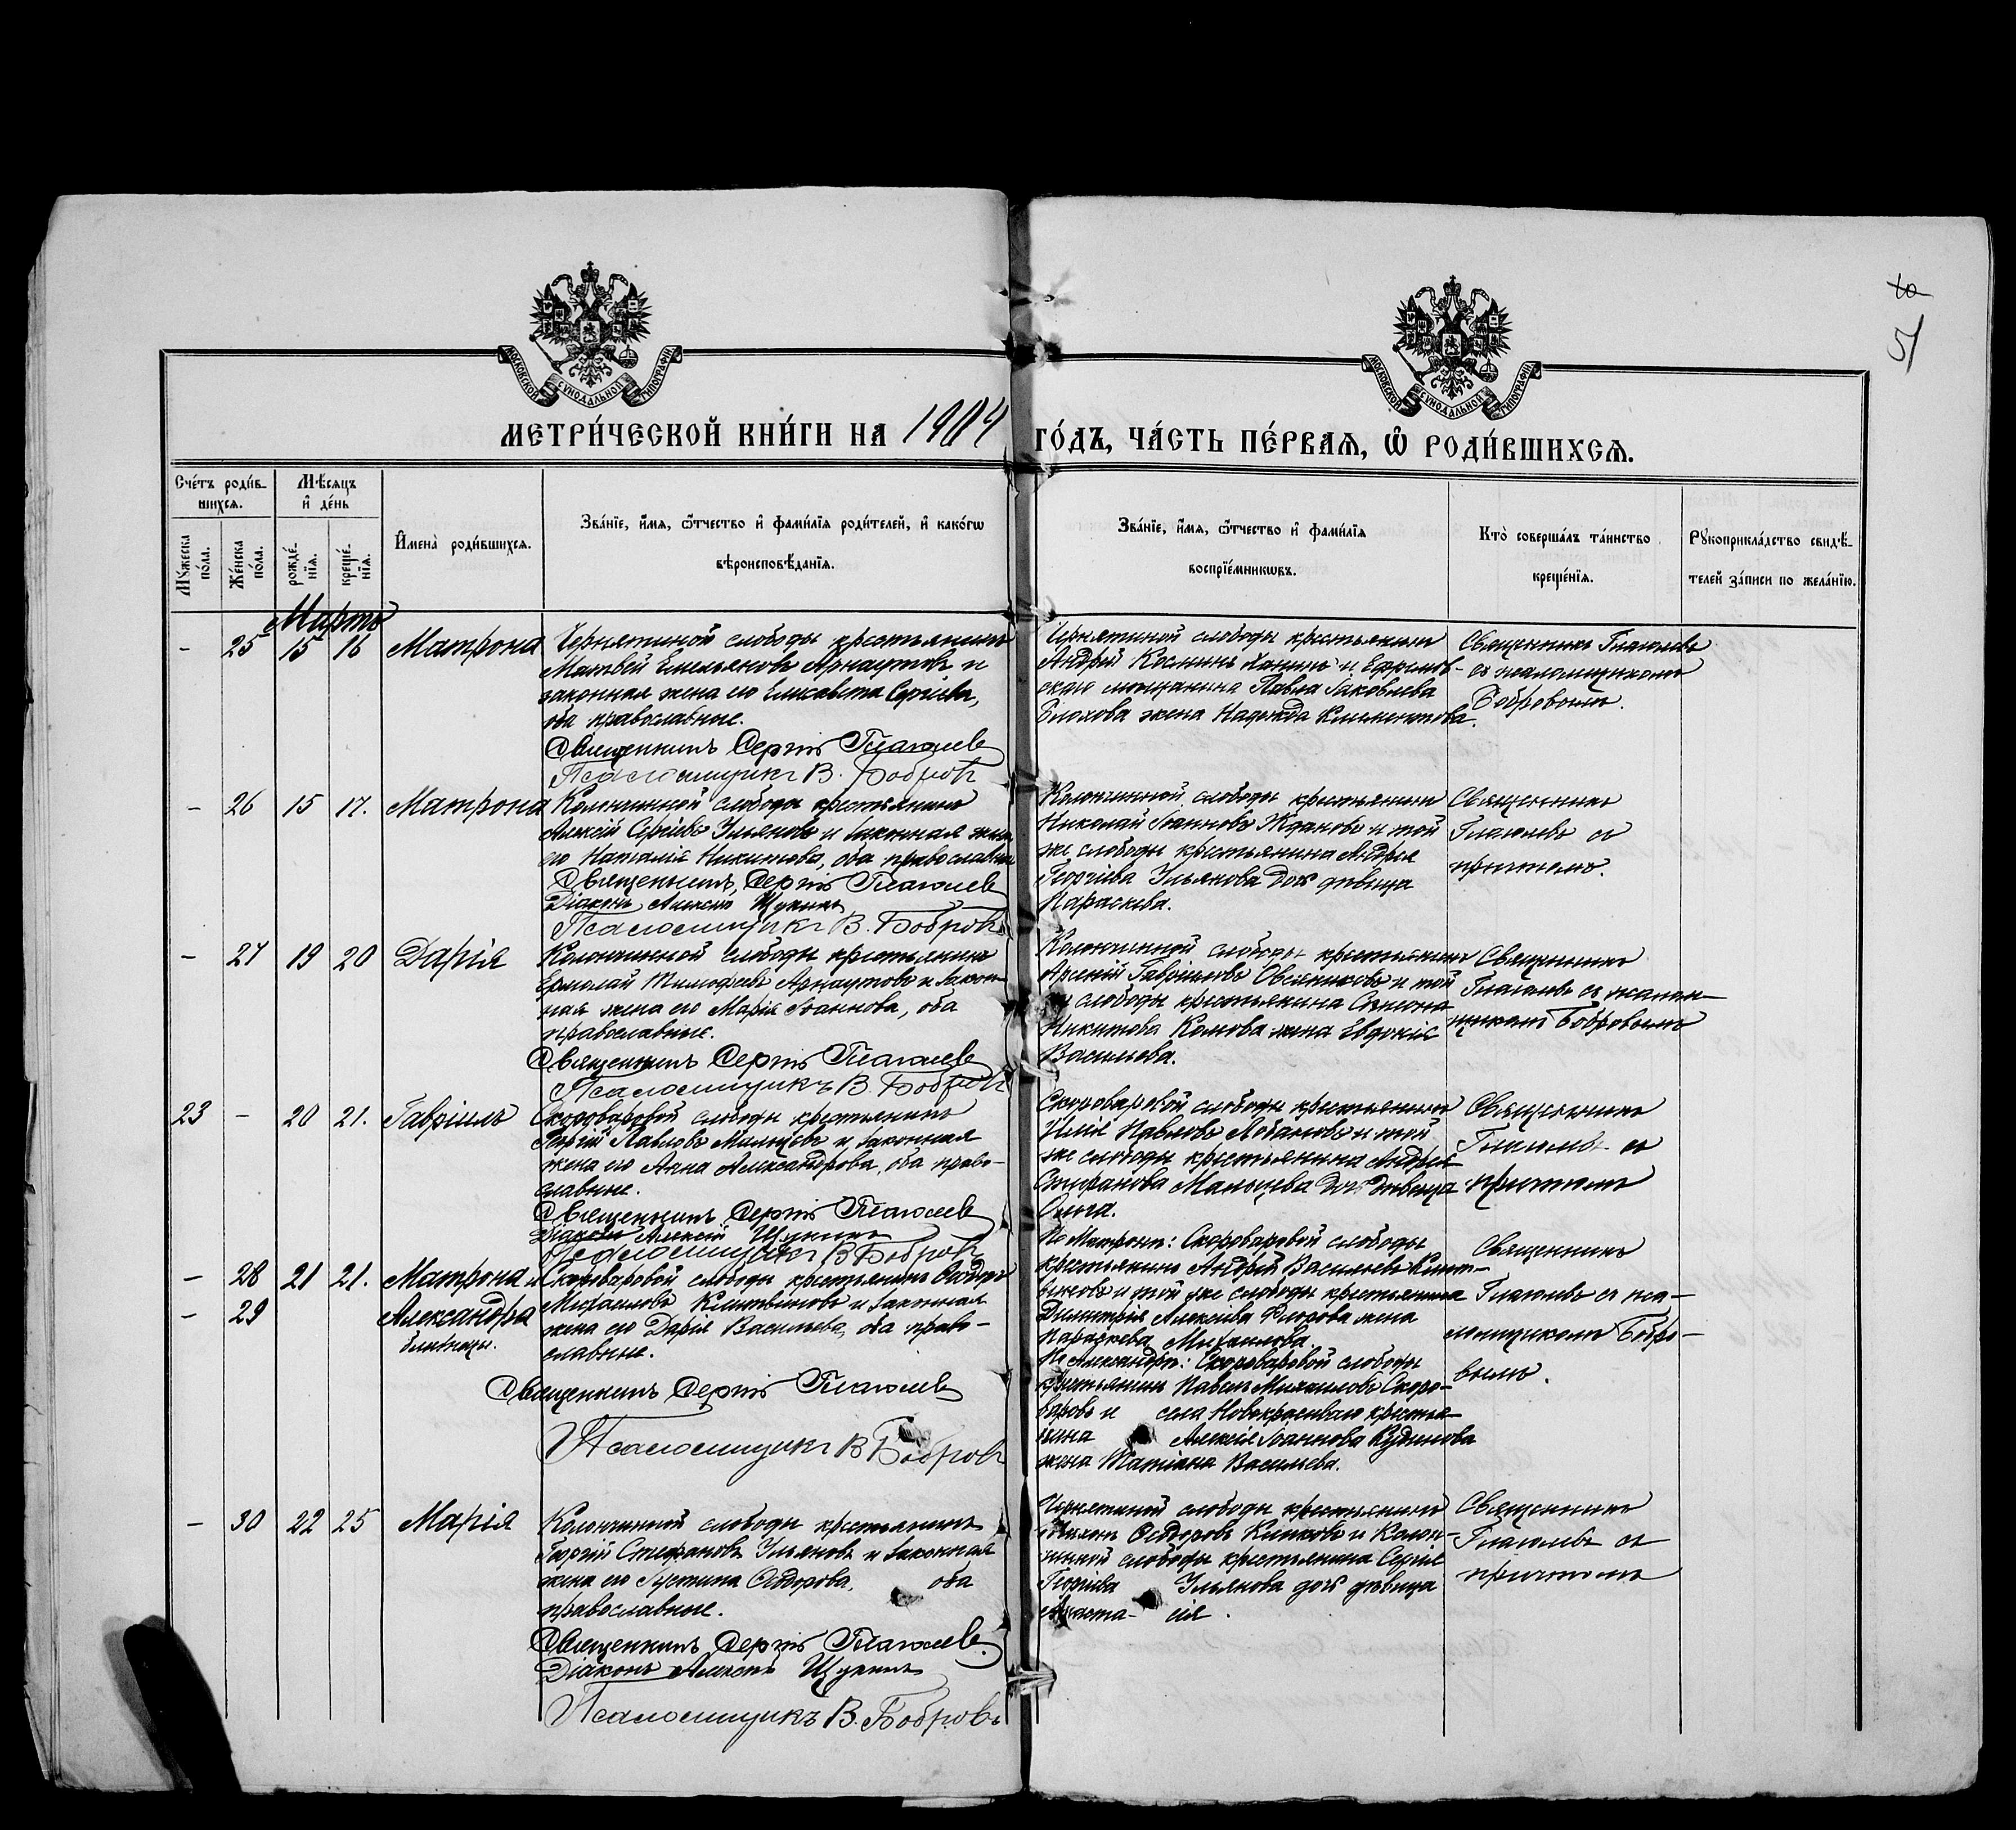 10
51
МОСКОВСКОЙ СѴНОДАЛЬНОЙ ТИПОГРАФІИ
МОСКОВСКОЙ СѴНОДАЛЬНОЙ ТИПОГРАФІИ
МЕТРИ́ЧЕСКОЙ КНИ́ГИ НА 1904 ГО́ДЪ, ЧА́СТЬ ПЕ́РВАѦ, Ѿ РОДИ́ВШИХСѦ.
Сче́тъ роди́в-
шихсѧ.
Мѣ́сѧцъ
и҆ де́нь
Мꙋ́жеска по́ла.
Же́нска по́ла.
рожде́-нїѧ.
креще́-нїѧ.
И҆мена̀ роди́вшихсѧ.
Зва́нїе, и҆́мѧ, ѻ҆́тчество и҆ фами́лїѧ роди́телей, и҆ како́гѡ
вѣроисповѣ́данїѧ.
Зва́нїе, и҆́мѧ, ѻ҆́тчество и҆ фами́лїѧ
воспрїе́мникѡвъ.
Кто̀ соверша́лъ та́инство
креще́нїѧ.
Рꙋкоприкла́дство свидѣ́-
телей за́писи по жела́нїю.
Мартъ
- 25 15 16 Матрона
Чернятиной слободы крестьянинъ
Матвей Емельяновъ Арнаутовъ и
законная жена его Елисавета Сергіева,
оба православные.
Священникъ Сергій Глаголевъ
Псаломщикъ В. Бобровъ
Чернятиной слободы крестьянинъ
Андрей Косминъ Ханинъ и Ефремов-
скаго мещанина Павла Іаковлева
Блохова жена Надежда Климентова.
Священникъ Глаголевъ
съ псаломщикомъ
Бобровымъ.
- 26 15 17. Матрона
слободы крестьянинъ
Алексій Сергіевъ Ульяновъ и законная жена
его Наталія Никитова, оба православные
Священникъ Сергій Глаголевъ
Діаконъ Алексій Щукинъ
Псаломщикъ В. Бобровъ
слободы крестьянинъ
Николай Іоанновъ Ждановъ и той
же слободы крестьянина Андрея
Георгіева Ульянова дочь девица
Параскева.
Священникъ
Глаголевъ съ
причтомъ.
- 27 19 20 Дарія
слободы крестьянинъ
Ермолай Тимофеевъ Арнаутовъ и закон-
ная жена его Марія Іоаннова, оба
православные.
Священникъ Сергій Глаголевъ
Псаломщикъ В. Бобровъ
слободы крестьянинъ
Арсеній Гавріиловъ Овсянниковъ и той
же слободы крестьянина Симеона
Никитова Комова жена Евдокія
Васильева.
Священникъ
Глаголевъ съ псалом-
щикомъ Бобровымъ
23 - 20 21. Гавріилъ
Скороваровой слободы крестьянинъ
Георгій Павловъ Мальцевъ и законная
жена его Анна Александрова, оба право-
славные.
Священникъ Сергій Глаголевъ
Діаконъ Алексій Щукинъ
Псаломщикъ В. Бобровъ
Скороваровой слободы крестьянинъ
Илія Павловъ Лобановъ и той
же слободы крестьянина Андрея
Стефанова Мальцева дочь девица
Ольга.
Священникъ
Глаголевъ съ
причтомъ
- 28 21 21. Матрона и
- 29 Александра
близнецы.
Скороваровой слободы крестьянинъ Ѳеодоръ
Михаиловъ и законная
жена его Дарія Васильева, оба право-
славные.
Священникъ Сергій Глаголевъ
Псаломщикъ В. Бобровъ
По Матроне: Скороваровой слободы
крестьянинъ Андрей Васильевъ
и той же слободы крестьянина
Димитрія Алексіева жена
Параскева Михаилова.
По Александре: Скороваровой слободы
крестьянинъ Павелъ Михаиловъ Скоро-
варовъ и села Новокрасиваго крестья-
нина Алексія Іоаннова Кудинова
жена Татіана Васильева.
Священникъ
Глаголевъ съ пса-
ломщикомъ Бобро-
вымъ.
- 30 22 25 Марія
слободы крестьянинъ
Георгій Стефановъ Ульяновъ и законная
жена его Іустина Ѳеодорова, оба
православные.
Священникъ Сергій Глаголевъ.
Діаконъ Алексій Щукинъ
Псаломщикъ В. Бобровъ
Чернятиной слободы крестьянинъ
Ѳеодоровъ и
слободы крестьянина Сергія
Георгіева Ульянова дочь девица
Анаста- сія.
Священникъ
Глаголевъ съ
причтомъ